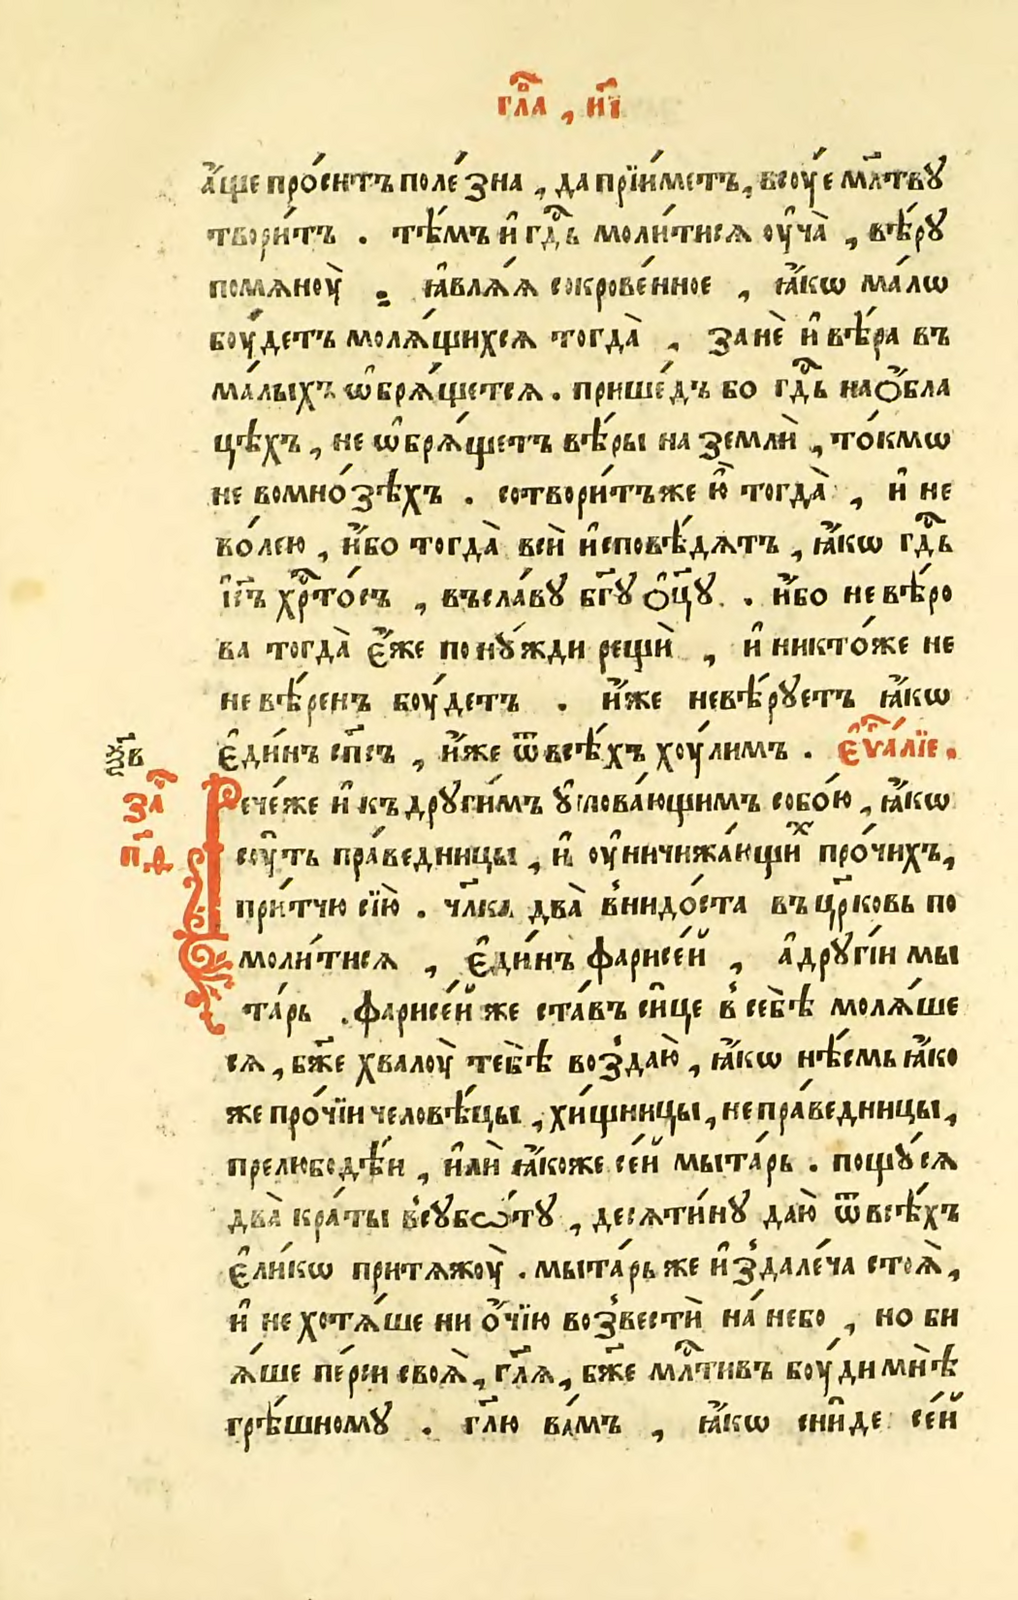 гл҃а , и҃і
а҆́ще про́ситъ поле́зна , да прїи́метъ , всоу́е мл҃твꙋ
твори́тъ . тѣ́мъ и҆ гд҇ь моли́тисѧ оу҆ча̀ , вѣ́рꙋ
помѧноу̀ . ꙗ҆влѧ́ѧ сокрове́нное , ꙗ҆́кѡ ма́лѡ
боу́детъ молѧ́щихсѧ тогда̀ , занѐ и҆ вѣ́ра въ
ма́лыхъ ѡ҆брѧ́щетсѧ . прише́дъ бо гд҇ь на ѻ҆́бла
цѣхъ , не ѡ҆брѧ́щетъ вѣ́ры на землѝ , то́кмѡ
не вомно́зѣхъ . сотвори́тъже и҆̀ тогда̀ , и҆ не
во́лею , и҆́бо тогда̀ всѝ и҆сповѣ́дѧтъ , ꙗ҆́кѡ гд҇ь
і҆и҃съ хрⷭ҇то́съ , въсла́вꙋ бг҃ꙋ ѻ҆ц҃ꙋ . и҆́бо невѣ́ро
ва тогда̀ є҆́же понꙋ́жди рещѝ , и҆ никто́же не
невѣ́ренъ боу́детъ . и҆́же невѣ́рꙋетъ ꙗ҆́кѡ
є҆ди́нъ сп҃съ , и҆́же ѿвсѣ́хъ хоу́лимъ . є҆ѵⷢ҇а́лїе .
ѯ҃в
за҇
п҃ѳ
Рече́же и҆ къ дрꙋги́мъ ᲂу҆пова́ющимъ собо́ю , ꙗ҆́кѡ
соу́ть пра́ведницы , и҆ оу҆ничижа́ющиⷯ про́чихъ ,
при́тчю сїю̀ . чл҃ка два̀ внидо́ста въ цр҃ковь по
моли́тисѧ , є҆ди́нъ фарисе́й , а҆ дрꙋгі́и мы
та́рь . фарисе́й же ста́въ си́це в себѣ̀ молѧ́ше
сѧ , бж҃е хвалоу̀ тебѣ̀ воздаю̀ , ꙗ҆́кѡ нѣ́смь ꙗ҆́ко
же про́чїи человѣ́цы , хи́щницы , непра́ведницы ,
прелюбодѣ́и , и҆лѝ ꙗ҆́коже се́й мыта́рь . пощꙋ́сѧ
два̀ кра́ты всꙋбѡ́тꙋ , десѧти́нꙋ даю̀ ѿвсѣ́хъ
є҆ли́кѡ притѧжоу̀ . мыта́рьже и҆здале́ча стоѧ̀ ,
и҆ не хотѧ́ше ни ѻ҆́чїю возвестѝ на́ небо , но би
ѧ́ше пе́рси своѧ̀ , гл҃ѧ , бж҃е млⷭ҇тивъ боу́ди мнѣ̀
грѣ́шномꙋ . гл҃ю ва́мъ , ꙗ҆́кѡ сни́де се́й